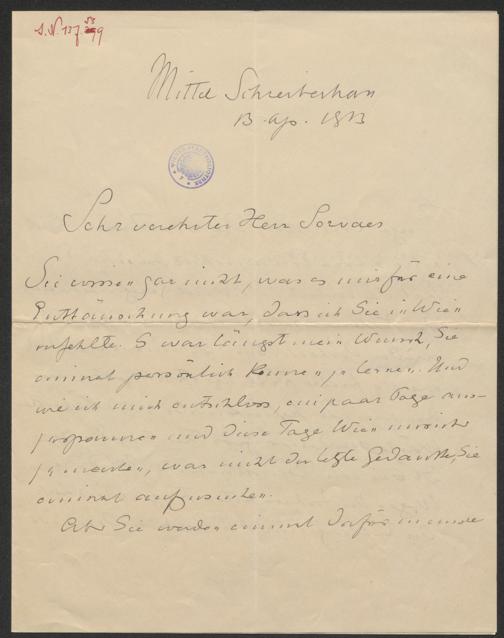 Mittel Schreiberhau
13. Ap. 1913
Sehr verehrter Herr Servaes
Sie wissen gar nicht, was es mir für eine
Enttäuschung war, dass ich Sie in Wien
verfehlte. Es war längst mein Wunsch, Sie
einmal persönlich kennen zu lernen. Und
wie ich mich entschloss, ein paar Tage aus-
zuspannen und diese Tage Wien
zu, war nicht der letzte Gedanke, Sie
einmal aufzusuchen.
Aber Sie werden einmal dafür